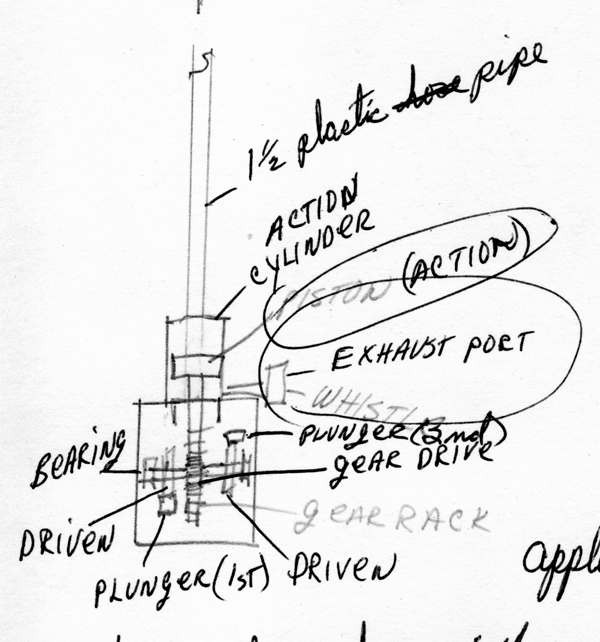 1½ plastic hose pipe
ACTION
CYLINDER
PISTON (ACTION)
EXHAUST PORT
WHISTLE
PLUNGER (2nd)
BEARING
gEAR DRIVE
gEAR RACK
DRIVEN
PLUNGER (1ST)
DRIVEN
appl